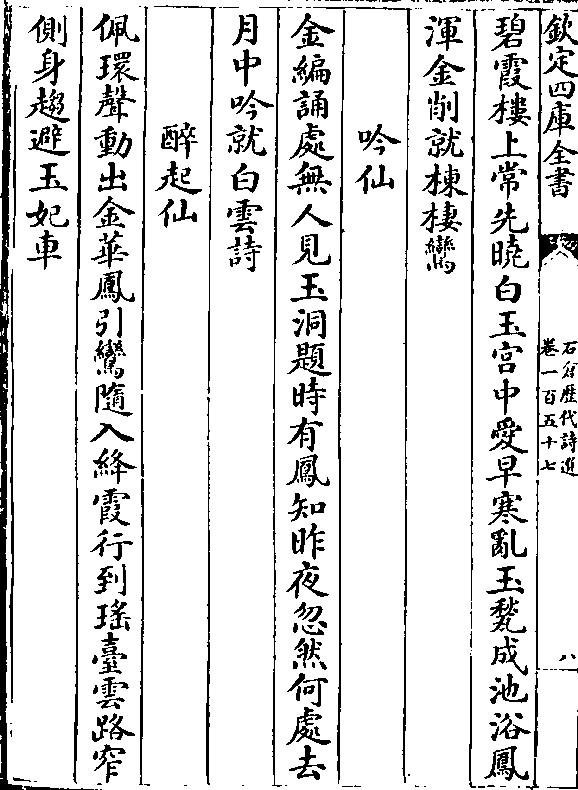 欽定四庫全書
石倉歷代詩選
卷一百五十七
八
碧霞樓上常先曉白玉宮中愛早寒亂玉甃成池浴鳳
渾金削就棟棲鸞
吟仙
金編誦處無人見玉洞題時有鳳知昨夜忽然何處去
月中吟就白雲詩
醉起仙
佩環聲動出金華鳳引鸞隨入絳霞行到瑤臺雲路窄
側身趨避玉妃車